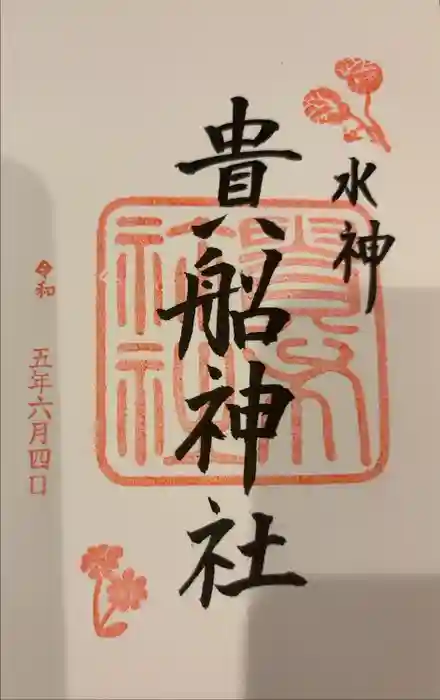 水神
貴船神社
令和 五年六月四日